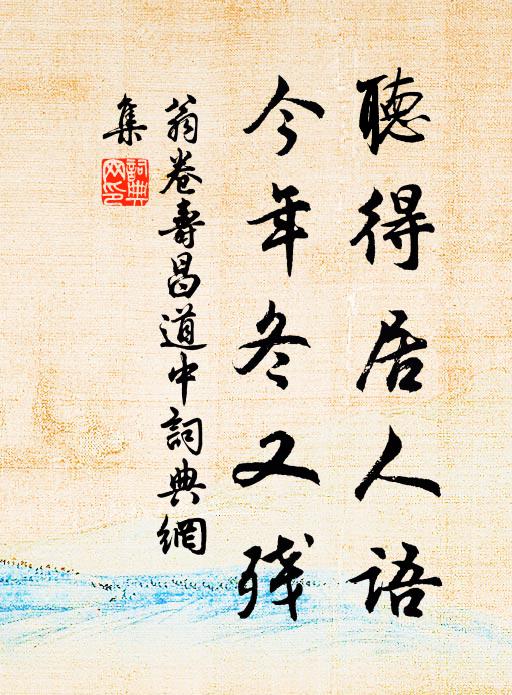 聽得居人語
今年冬又残
翁卷壽昌道中詞典網
集
詞典网印